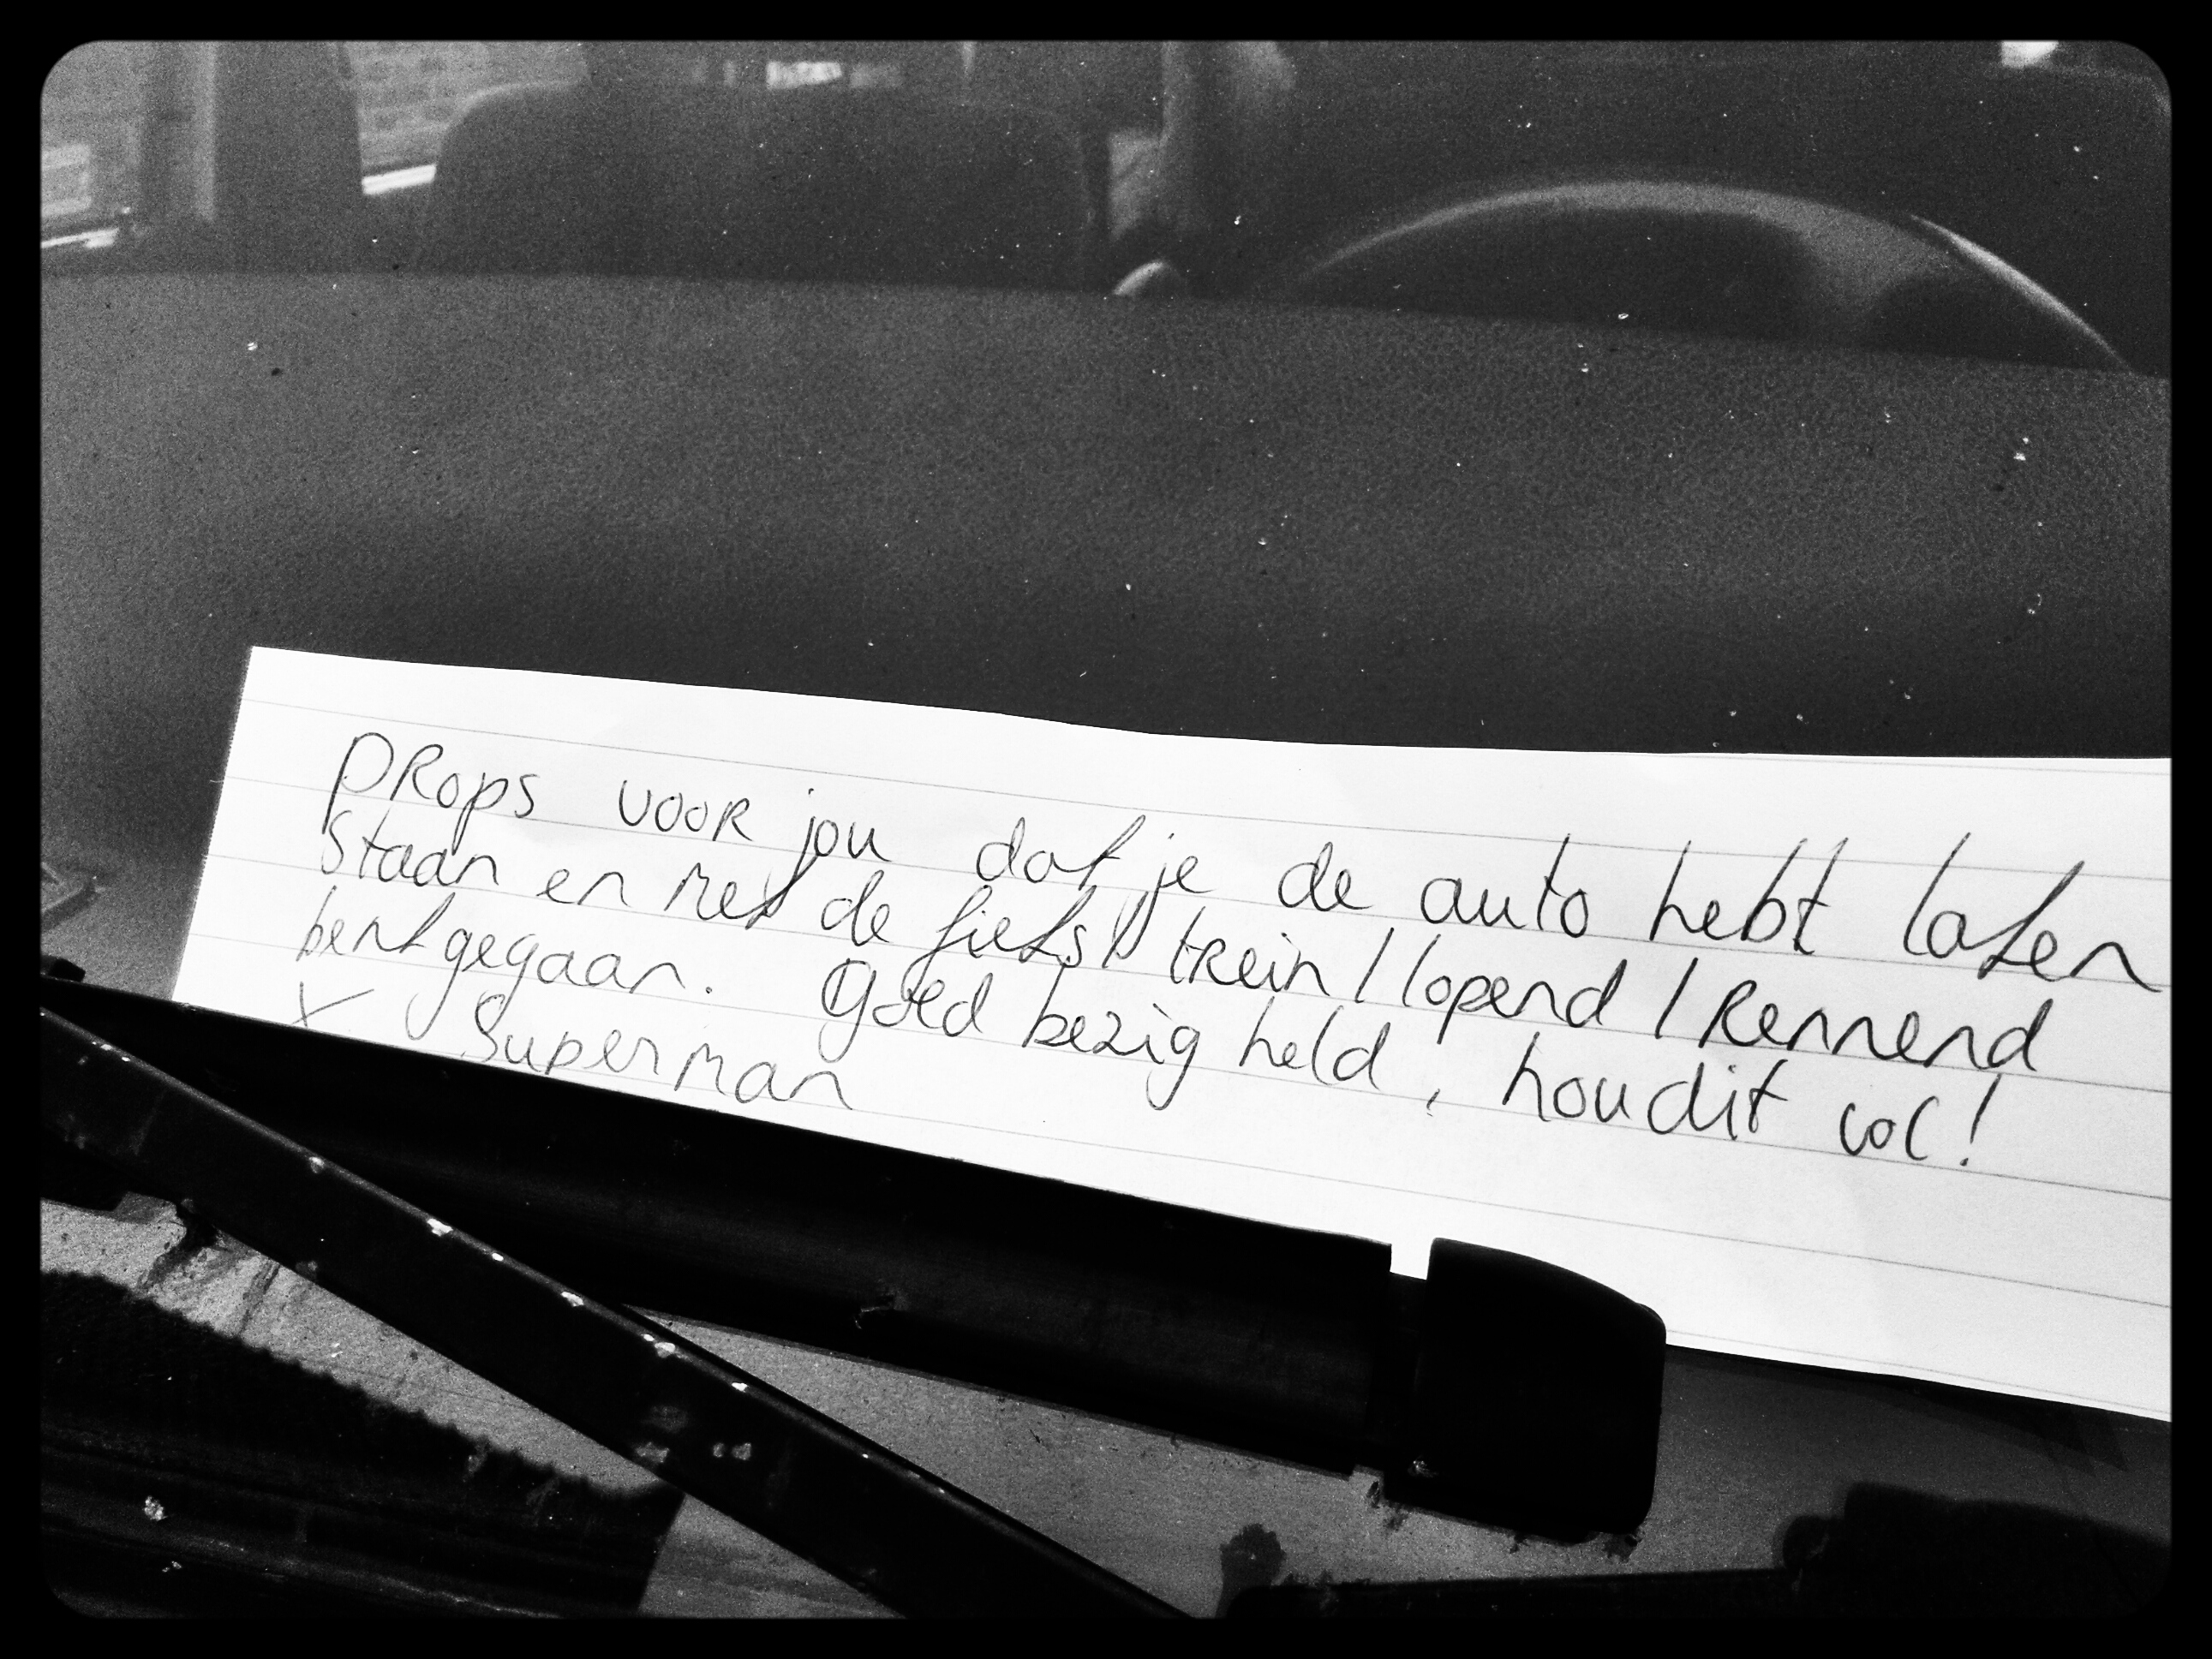 Props voor jou dat je de auto hebt laten
staan en met de fiets / trein / lopend / Rennend
bent gegaan. Goed bezig held, houdit vol!
X Superman